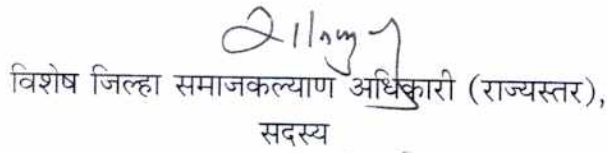 विशेष जिल्हा समाजकल्याण अधिकारी (राज्यस्तर),
सदस्य